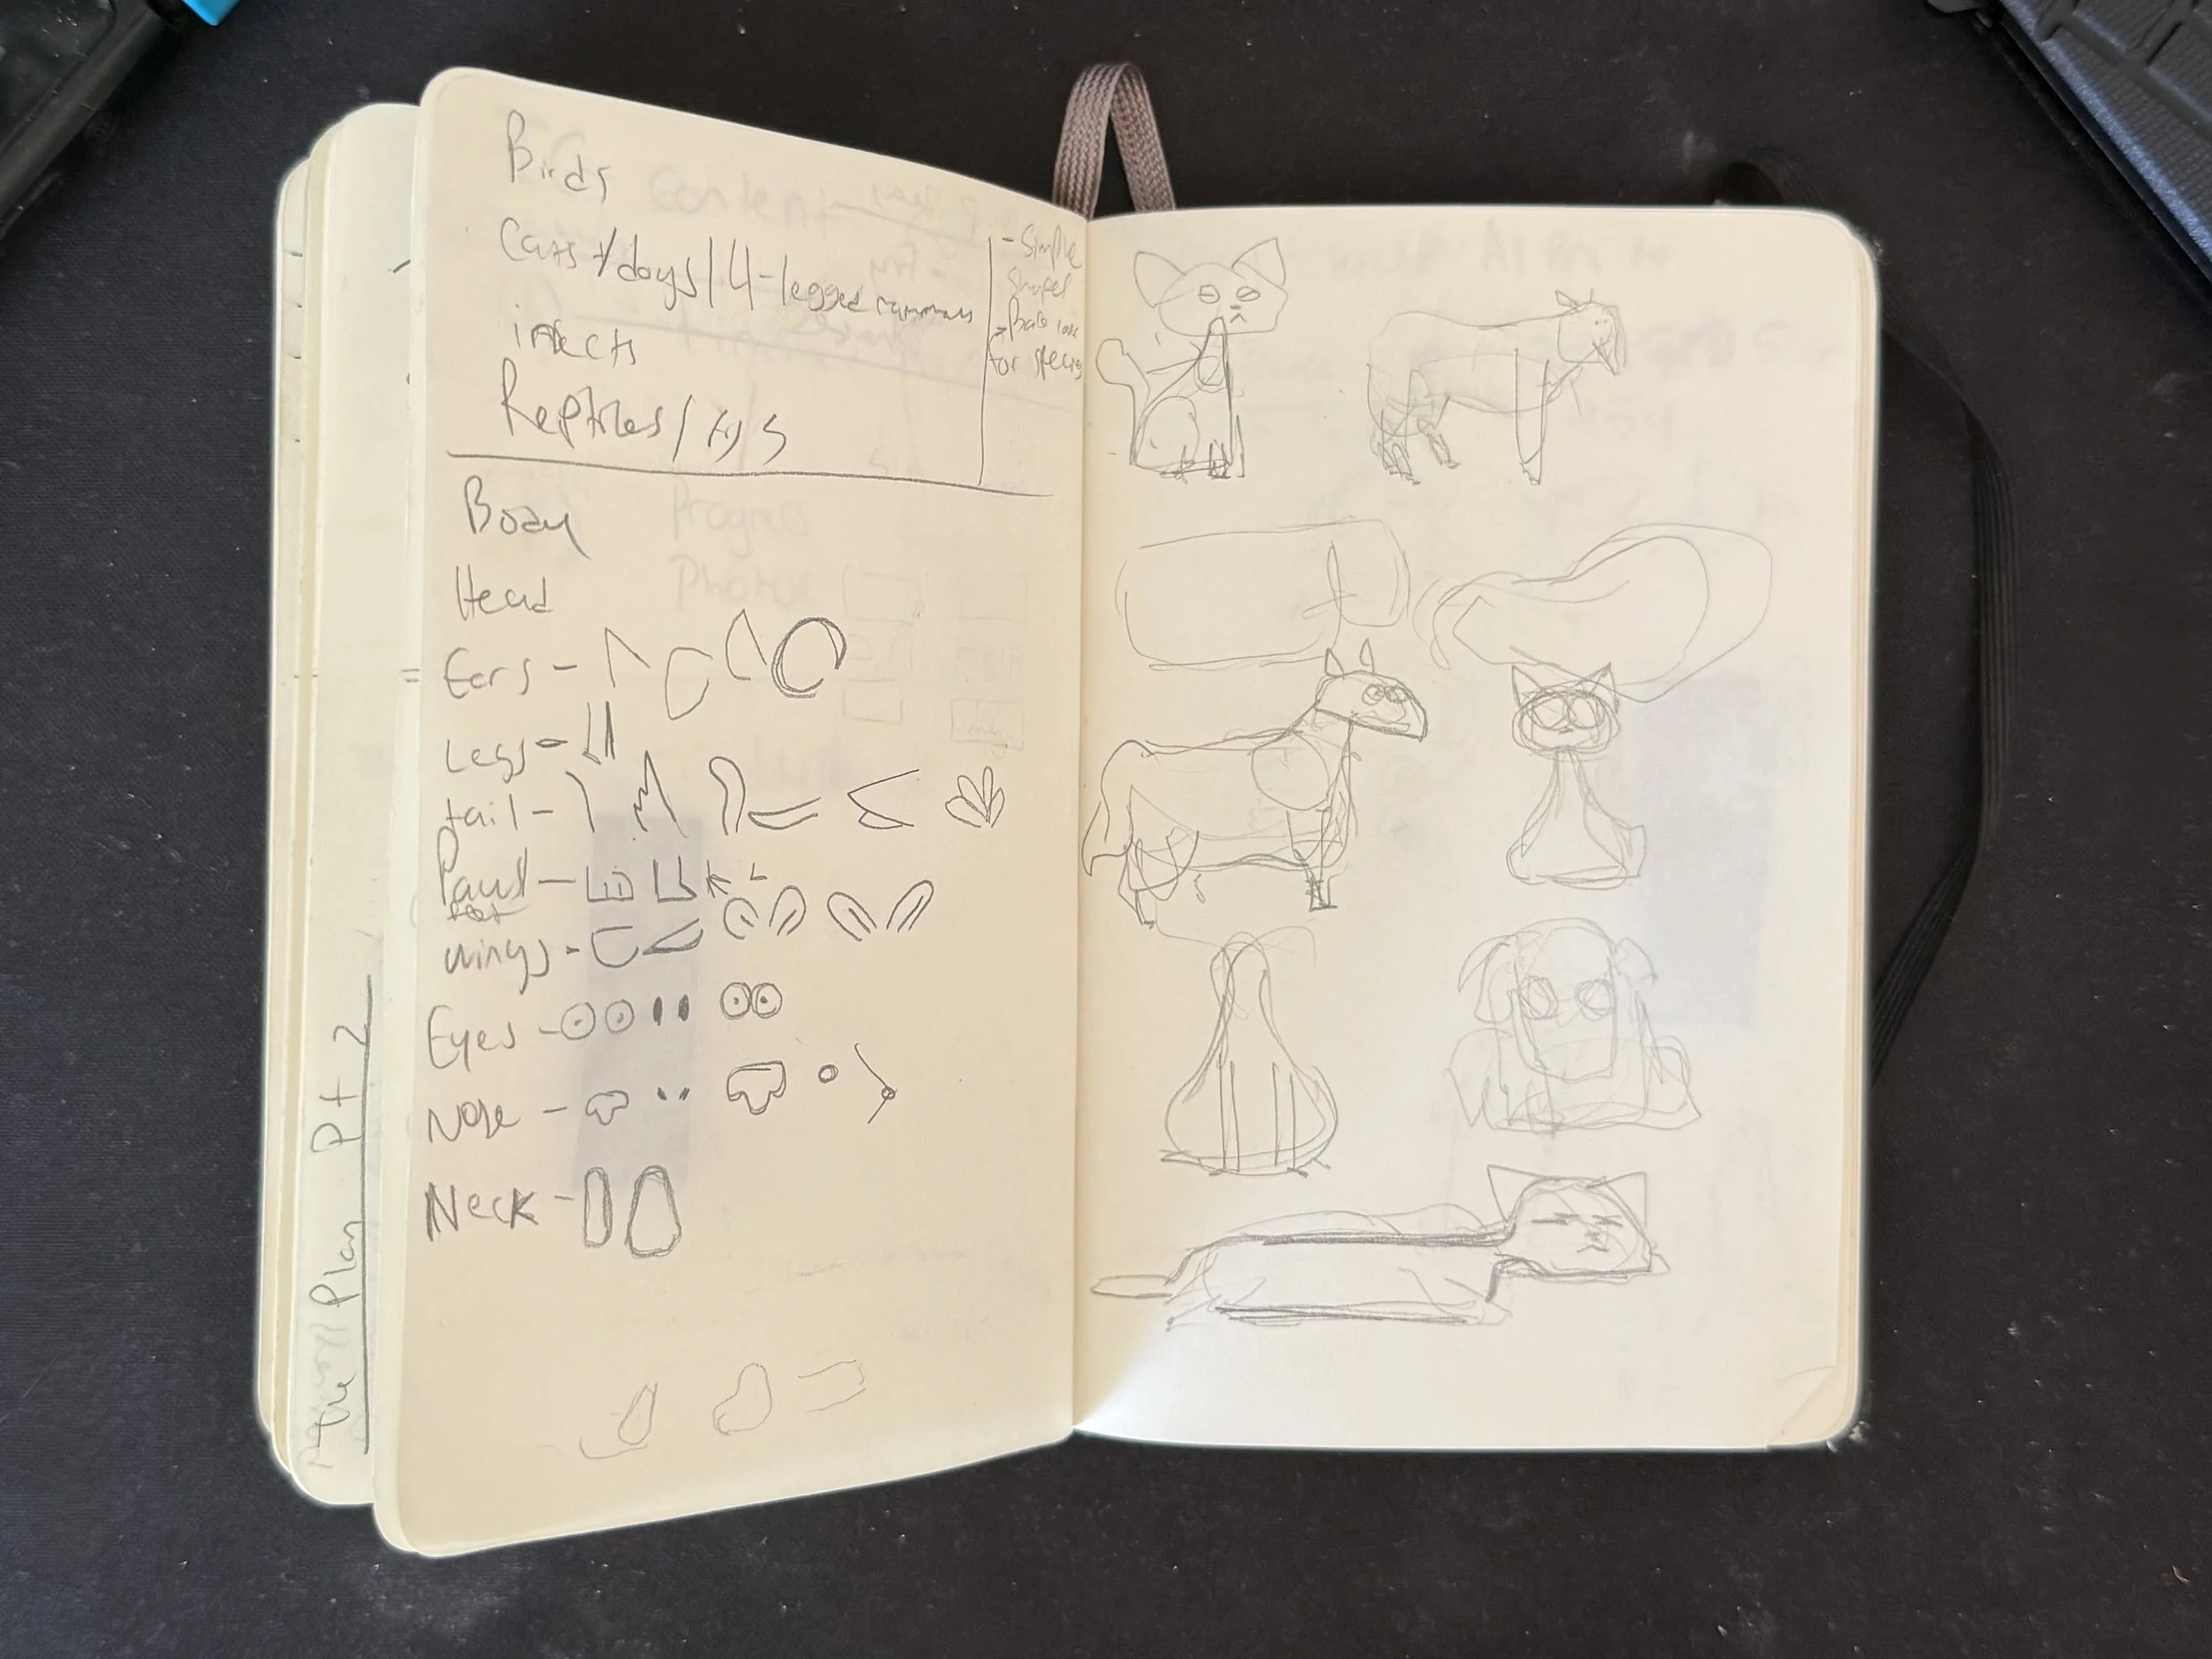 Birds
Cats +/dogs/4-legged mammals
insects
Reptiles/
- Simple
shapes
for species
Body
Head
Ears -
Legs -
tail -
Paws -
feet
wings -
Eyes -
Nose -
Neck -
The Plan Pt 2
Content
Progress
Photos